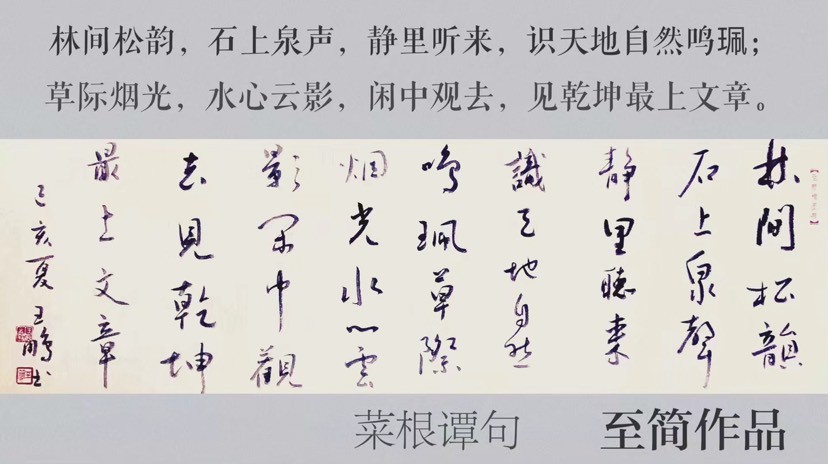 林间松韵，石上泉声，静里听来，识天地自然鸣珮；
草际烟光，水心云影，闲中观去，见乾坤最上文章。
林間松韻
石上泉聲
靜里聽来
識天地自然
鳴珮草際
烟光水心雲
影閑中觀
去見乾坤
最上文章
己亥夏王鹏书
菜根谭句
至简作品